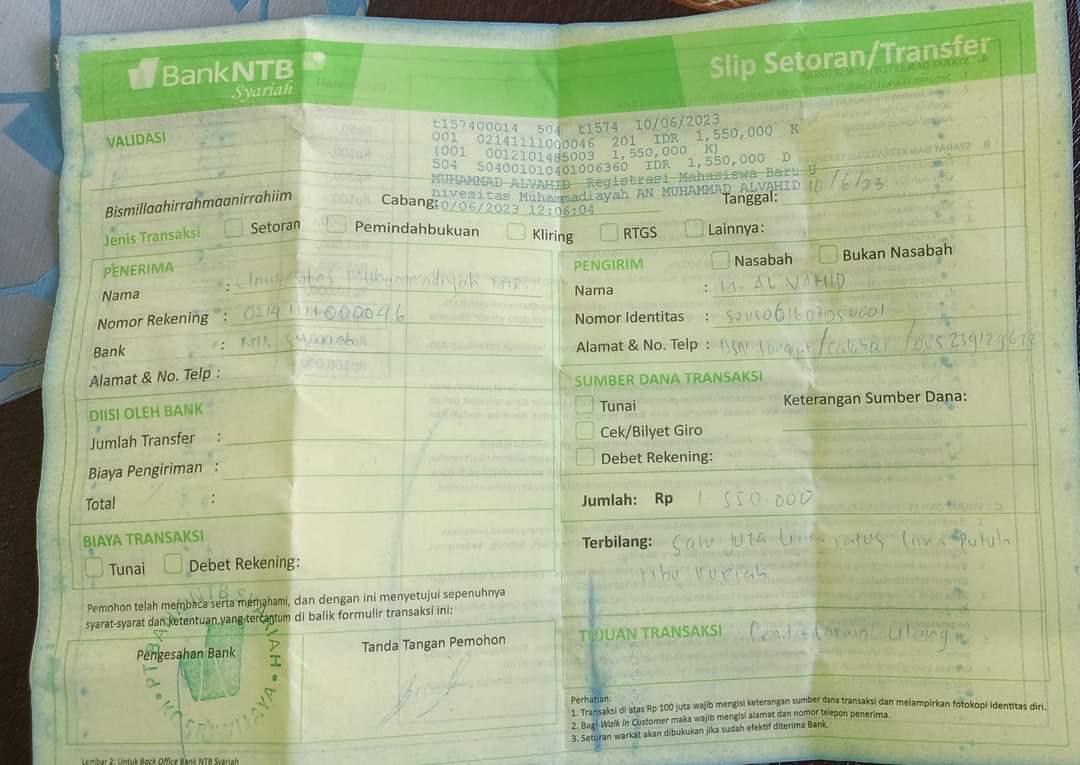 BankNTB
Syariah
Slip Setoran/Transfer
VALIDASI
t157400014 504 t1574 10/06/2023
001 02141111000046 201 IDR 1,550,000 K
(001 0012101485003 1,550,000 K)
504 504001010401006360 IDR 1,550,000 D
MUHAMMAD ALVAHID Registrasi Mahasiswa Baru U
nivesitas Muhammadiayah AN MUHAMMAD ALVAHID
10/06/2023 12:06:04
Bismillaahirrahmaanirrahiim
Cabang:
Tanggal: 10/6/23
Jenis Transaksi Setoran Pemindahbukuan Kliring RTGS Lainnya:
PENERIMA
Nama : Universitas
Nomor Rekening :
Bank :
Alamat & No. Telp :
DIISI OLEH BANK
Jumlah Transfer :
Biaya Pengiriman :
Total :
BIAYA TRANSAKSI
Tunai Debet Rekening:
Pemohon telah membaca serta memahami, dan dengan ini menyetujui sepenuhnya
syarat-syarat dan ketentuan yang tercantum di balik formulir transaksi ini:
Pengesahan Bank
Tanda Tangan Pemohon
PT BANK NTB SYARIAH
Lembar 2: Untuk Back Office Bank NTB Syariah
PENGIRIM Nasabah Bukan Nasabah
Nama : M. AL VAHID
Nomor Identitas :
Alamat & No. Telp :
SUMBER DANA TRANSAKSI
Tunai
Keterangan Sumber Dana:
Cek/Bilyet Giro
Debet Rekening:
Jumlah: Rp 1.550.000
Terbilang: Satu juta lima ratus lima puluh
ribu rupiah
TUJUAN TRANSAKSI Pendaftaran Ulang
Perhatian:
1. Transaksi di atas Rp 100 juta wajib mengisi keterangan sumber dana transaksi dan melampirkan fotokopi identitas diri.
2. Bagi Walk In Customer maka wajib mengisi alamat dan nomor telepon penerima.
3. Setoran warkat akan dibukukan jika sudah efektif diterima Bank.